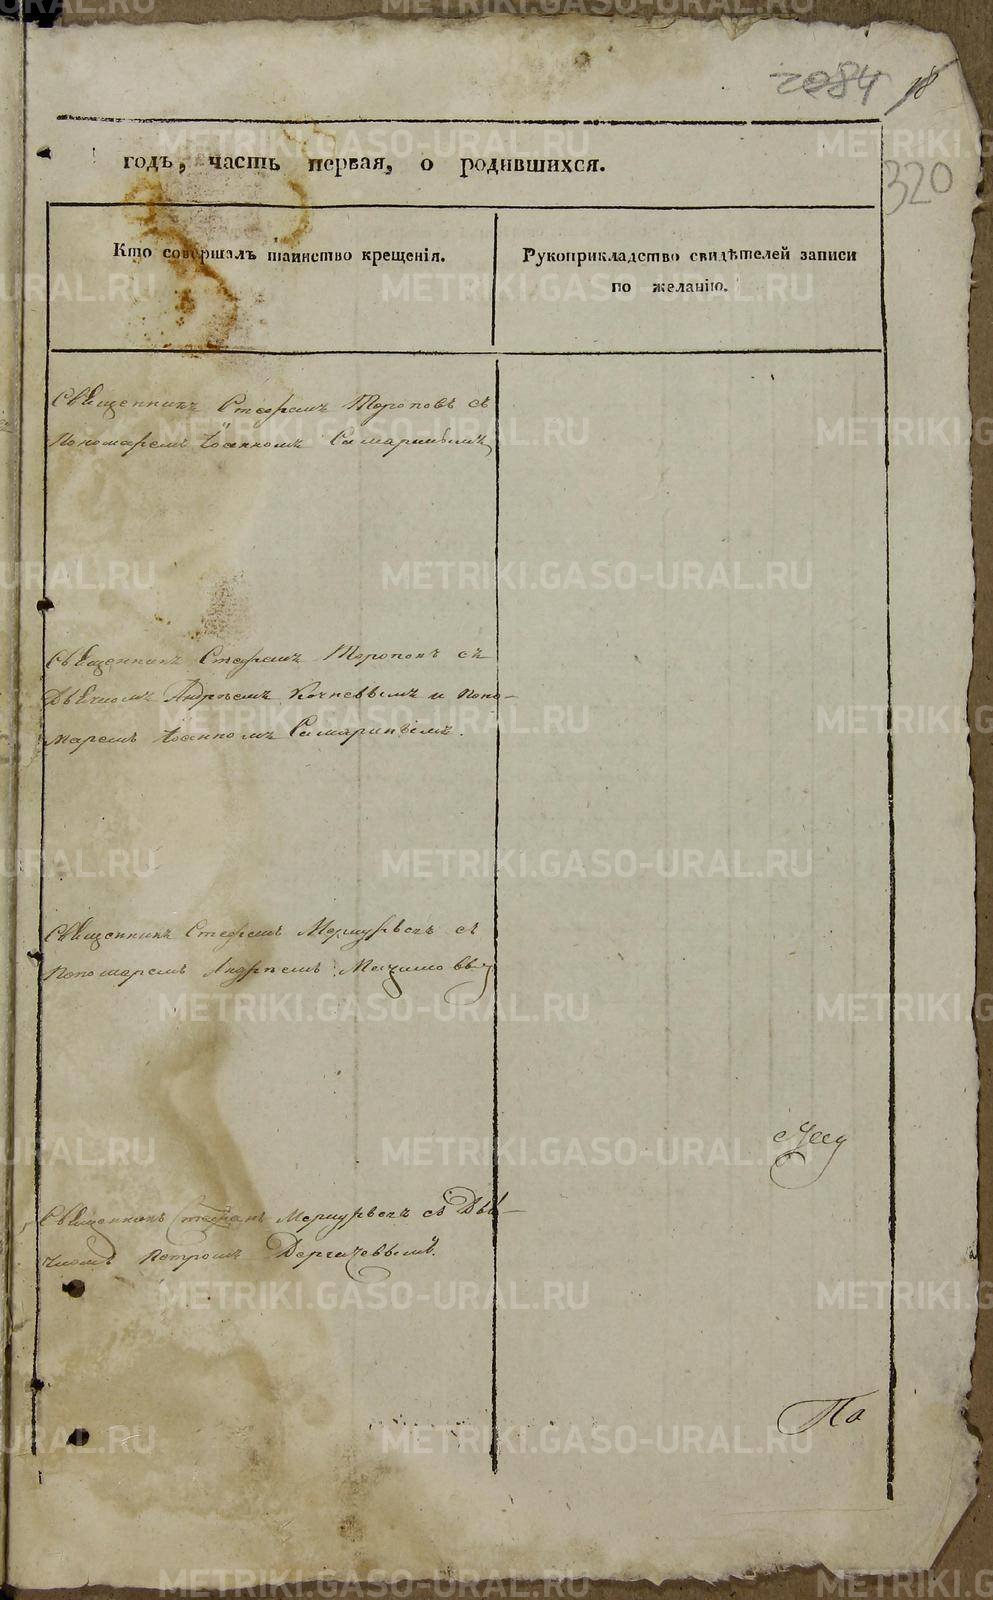 2084 18
320
годъ, часть первая, о родившихся.
Кто совершалъ таинство крещенія.
Рукоприкладство свидѣтелей записи
по желанію.
Священникъ Стефанъ Тороповъ съ
Пономаремъ Іоанномъ Самаринымъ
Священникъ Стефанъ Тороповъ съ
Дьячкомъ Андреемъ Кочневымъ и Поно-
маремъ Іоанномъ Самаринымъ.
Священникъ Стефанъ Меркурьевъ съ
Пономаремъ Андреемъ
Священникъ Стефанъ Меркурьевъ съ Дья-
чкомъ Петромъ Дергачевымъ.
По
METRIKI.GASO-URAL.RU